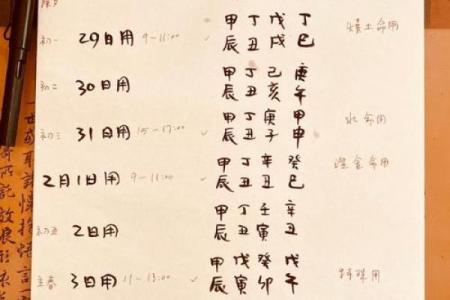 甲丁戊丁
初一 29日用 9-11:00 ✓ 辰丑戌巳 燥土命用
甲丁己庚
初二 30日用 辰丑亥午
甲丁庚甲
初三 31日用 15-17:00 ✓ 辰丑子申 水命用
甲丁辛癸
2月1日用 9-11:00 ✓ 辰丑丑巳 湿金命用
甲丁壬辛
初五 2日用 辰丑寅丑
甲戊癸戊
立春 3日用 11-13:00 ✓ 辰寅卯午 特殊用
世或取諸懷抱悟言一
所託放浪形